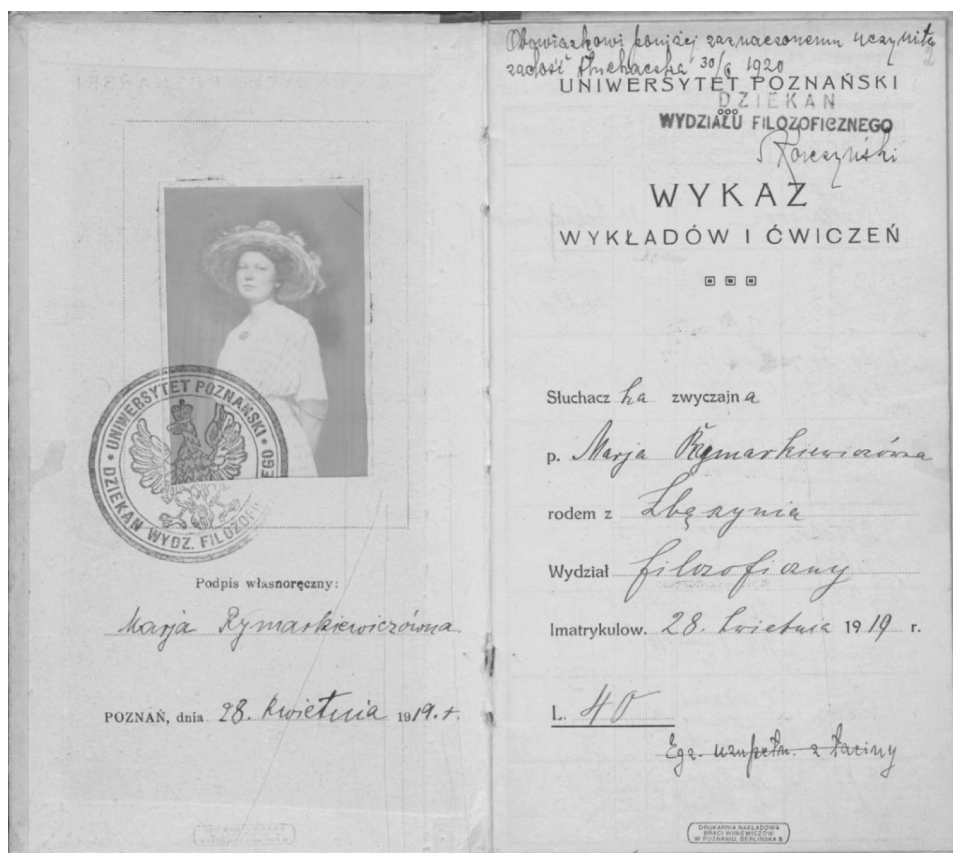 UNIWERSYTET POZNAŃSKI · DZIEKAN WYDZ. FILOZOFICZNEGO
Podpis własnoręczny:
Marja Rymarkiewiczówna
POZNAŃ, dnia 28. kwietnia 1919. r.
Obowiązkowi poniżej zaznaczonemu uczyniła
zadość słuchaczka 30/6 1920
2
UNIWERSYTET POZNAŃSKI
DZIEKAN
WYDZIAŁU FILOZOFICZNEGO
WYKAZ
WYKŁADÓW I ĆWICZEŃ
Słuchacz ka zwyczajna
p. Marja Rymarkiewiczówna
rodem z Zbąszynia
Wydział filozoficzny
Imatrykulow. 28. kwietnia 1919 r.
L. 40
Egz. uzupełn. z łaciny
DRUKARNIA NAKŁADOWA
BRACI WINIEWICZÓW
W POZNANIU, BERLIŃSKA 5